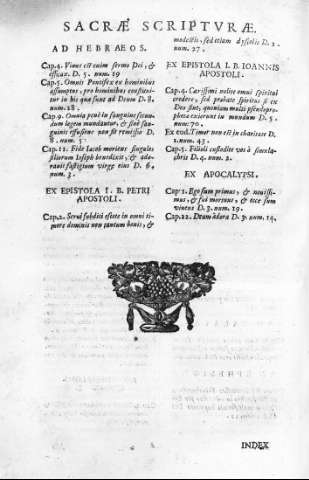 SACRÆ SCRIPTVRÆ.
AD HEBRAEOS.
Cap. 4. Viuus est enim sermo Dei, &
efficax. D. 5. num. 29
Cap. 5. Omnis Pontifex ex hominibus
assumptus, pro hominibus constitui-
tur in his quæ sunt ad Deum D. 8.
num. 28.
Cap. 9. Omnia penè in sanguine secun-
dum legem mundantur, & sine san-
guinis effusione non fit remissio D.
1. num. 5.
Cap. 11. Fide Iacob moriens singulos
filiorum Ioseph benedixit, & ado-
rauit fastigium virgæ eius D. 6.
num. 3.
EX EPISTOLA I. B. PETRI
APOSTOLI.
Cap. 2. Serui subditi estote in omni ti-
more dominis non tantum bonis, &
modestis, sed etiam dyscolis D. 2.
num. 27.
EX EPISTOLA I. B. IOANNIS
APOSTOLI.
Cap. 4. Carissimi nolite omni spiritui
credere, sed probate spiritus si ex
Deo sint, quoniam multi pseudopro-
phetæ exierunt in mundum D. 5.
num. 70.
Ex eod. Timor non est in charitate D.
1. num. 43.
Cap. 5. Filioli custodite vos à simula-
chris D. 4. num. 2.
EX APOCALYPSI.
Cap. 1. Ego sum primus, & nouissi-
mus, & fui mortuus, & ecce sum
viuens D. 3. num. 19.
Cap. 22. Deum adora D. 3. num. 14.
INDEX